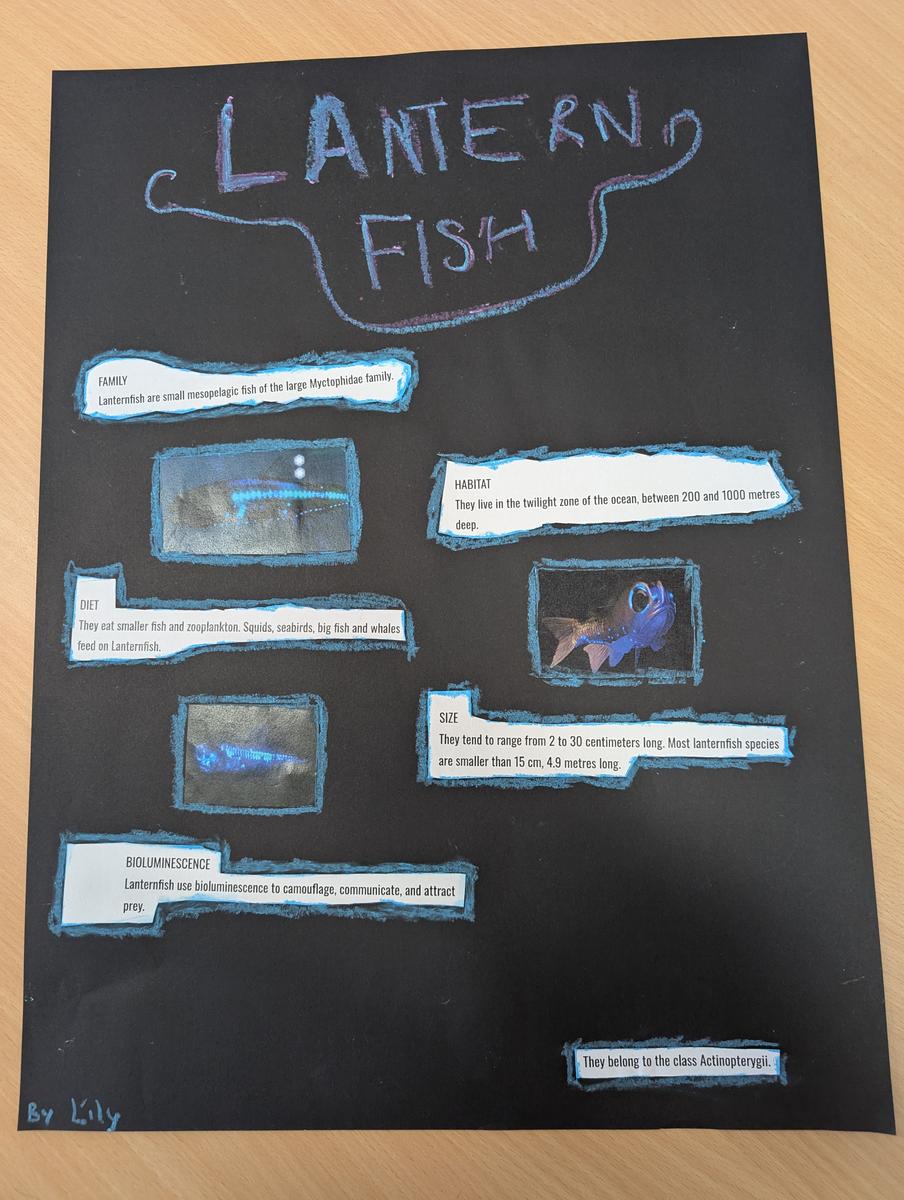 LANTERN
FISH
FAMILY
Lanternfish are small mesopelagic fish of the large Myctophidae family.
HABITAT
They live in the twilight zone of the ocean, between 200 and 1000 metres
deep.
DIET
They eat smaller fish and zooplankton. Squids, seabirds, big fish and whales
feed on Lanternfish.
SIZE
They tend to range from 2 to 30 centimeters long. Most lanternfish species
are smaller than 15 cm, 4.9 metres long.
BIOLUMINESCENCE
Lanternfish use bioluminescence to camouflage, communicate, and attract
prey.
They belong to the class Actinopterygii.
By Lily